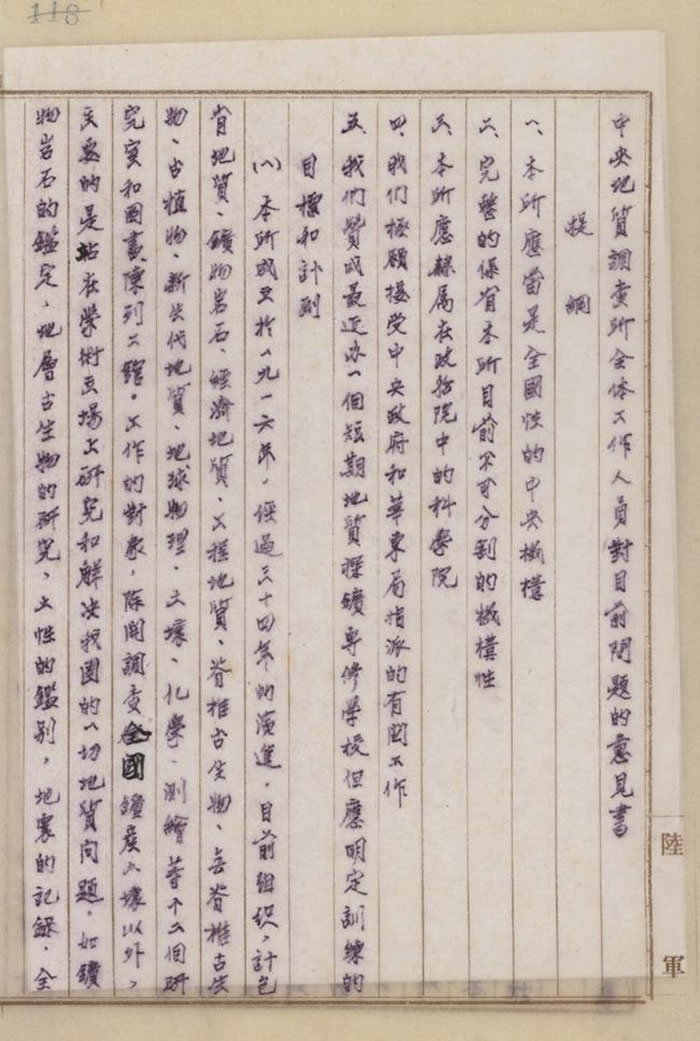 118
中央地質調查所全体工作人員對目前問題的意見書
提綱
一、本所應當是全國性的中央機構
二、完整的保有本所目前不可分割的機構性
三、本所應隸屬在政務院中的科學院
四、我們極願接受中央政府和華東局指派的有関工作
五、我們贊成最近办一個短期地質探鑛専修學校但應明定訓練的
目標和計劃
(一)本所成立於一九一六年，經過三十四年的演進，目前組织，計包
省地質、鑛物岩石、經濟地質、工程地質、脊椎古生物、無脊椎古生
物、古植物、新生代地質、地球物理、土壤、化學、測繪等十二個研
究室和圖書陳列二舘。工作的對象，除開調查全國鑛產土壤以外，
主要的是站在學術立場上研究和解决我國的一切地質问題，如鑛
物岩石的鑑定，地層古生物的研究，土性的鑑别，地震的記錄，全
陸軍